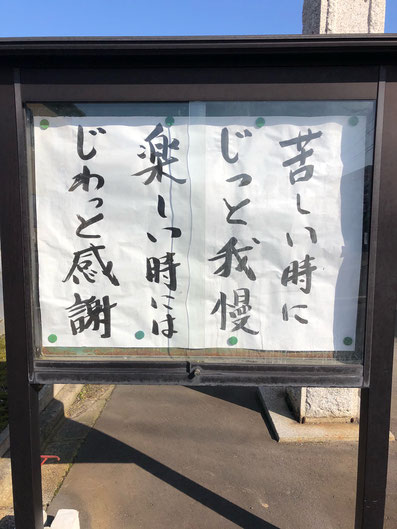 苦しい時に
じっと我慢
楽しい時には
じわっと感謝